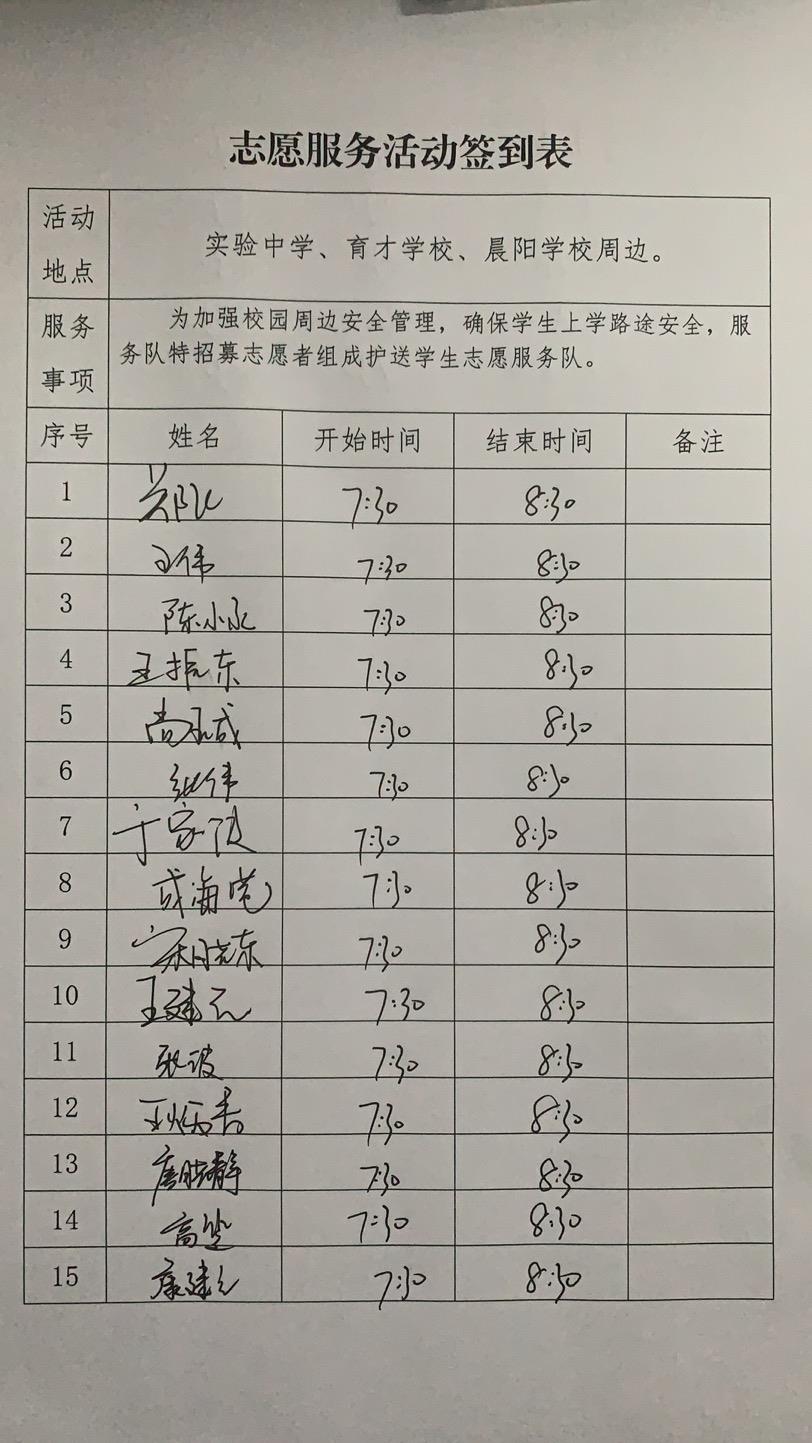 志愿服务活动签到表
活动地点 实验中学、育才学校、晨阳学校周边。
服务事项 为加强校园周边安全管理，确保学生上学路途安全，服
务队特招募志愿者组成护送学生志愿服务队。
序号 姓名 开始时间 结束时间 备注
1 7:30 8:30
2 王伟 7:30 8:30
3 陈小永 7:30 8:30
4 王振东 7:30 8:30
5 7:30 8:30
6 张伟 7:30 8:30
7 7:30 8:30
8 7:30 8:30
9 宋晓东 7:30 8:30
10 王建元 7:30 8:30
11 耿波 7:30 8:30
12 7:30 8:30
13 唐晓静 7:30 8:30
14 7:30 8:30
15 康建元 7:30 8:30